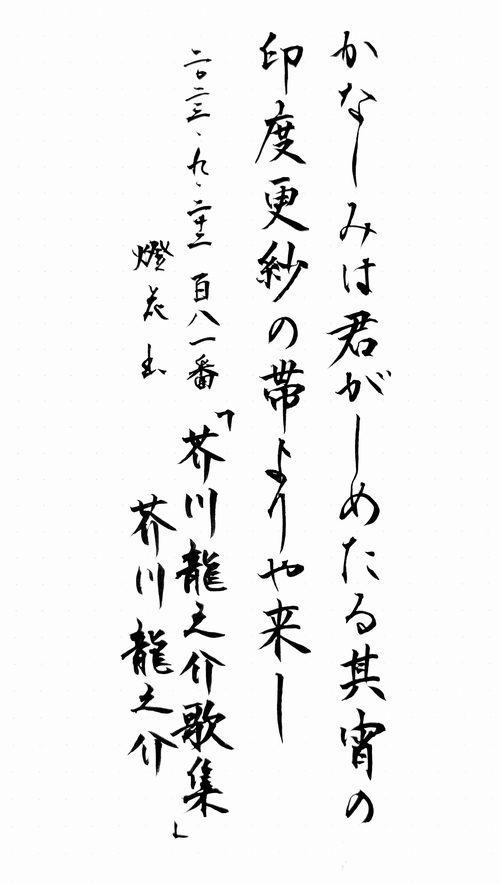 かなしみは君がしめたる其宵の
印度更紗の帯よりや来し
二〇二三、九、二十二 百八一番 「芥川龍之介歌集」
燈花書 芥川龍之介